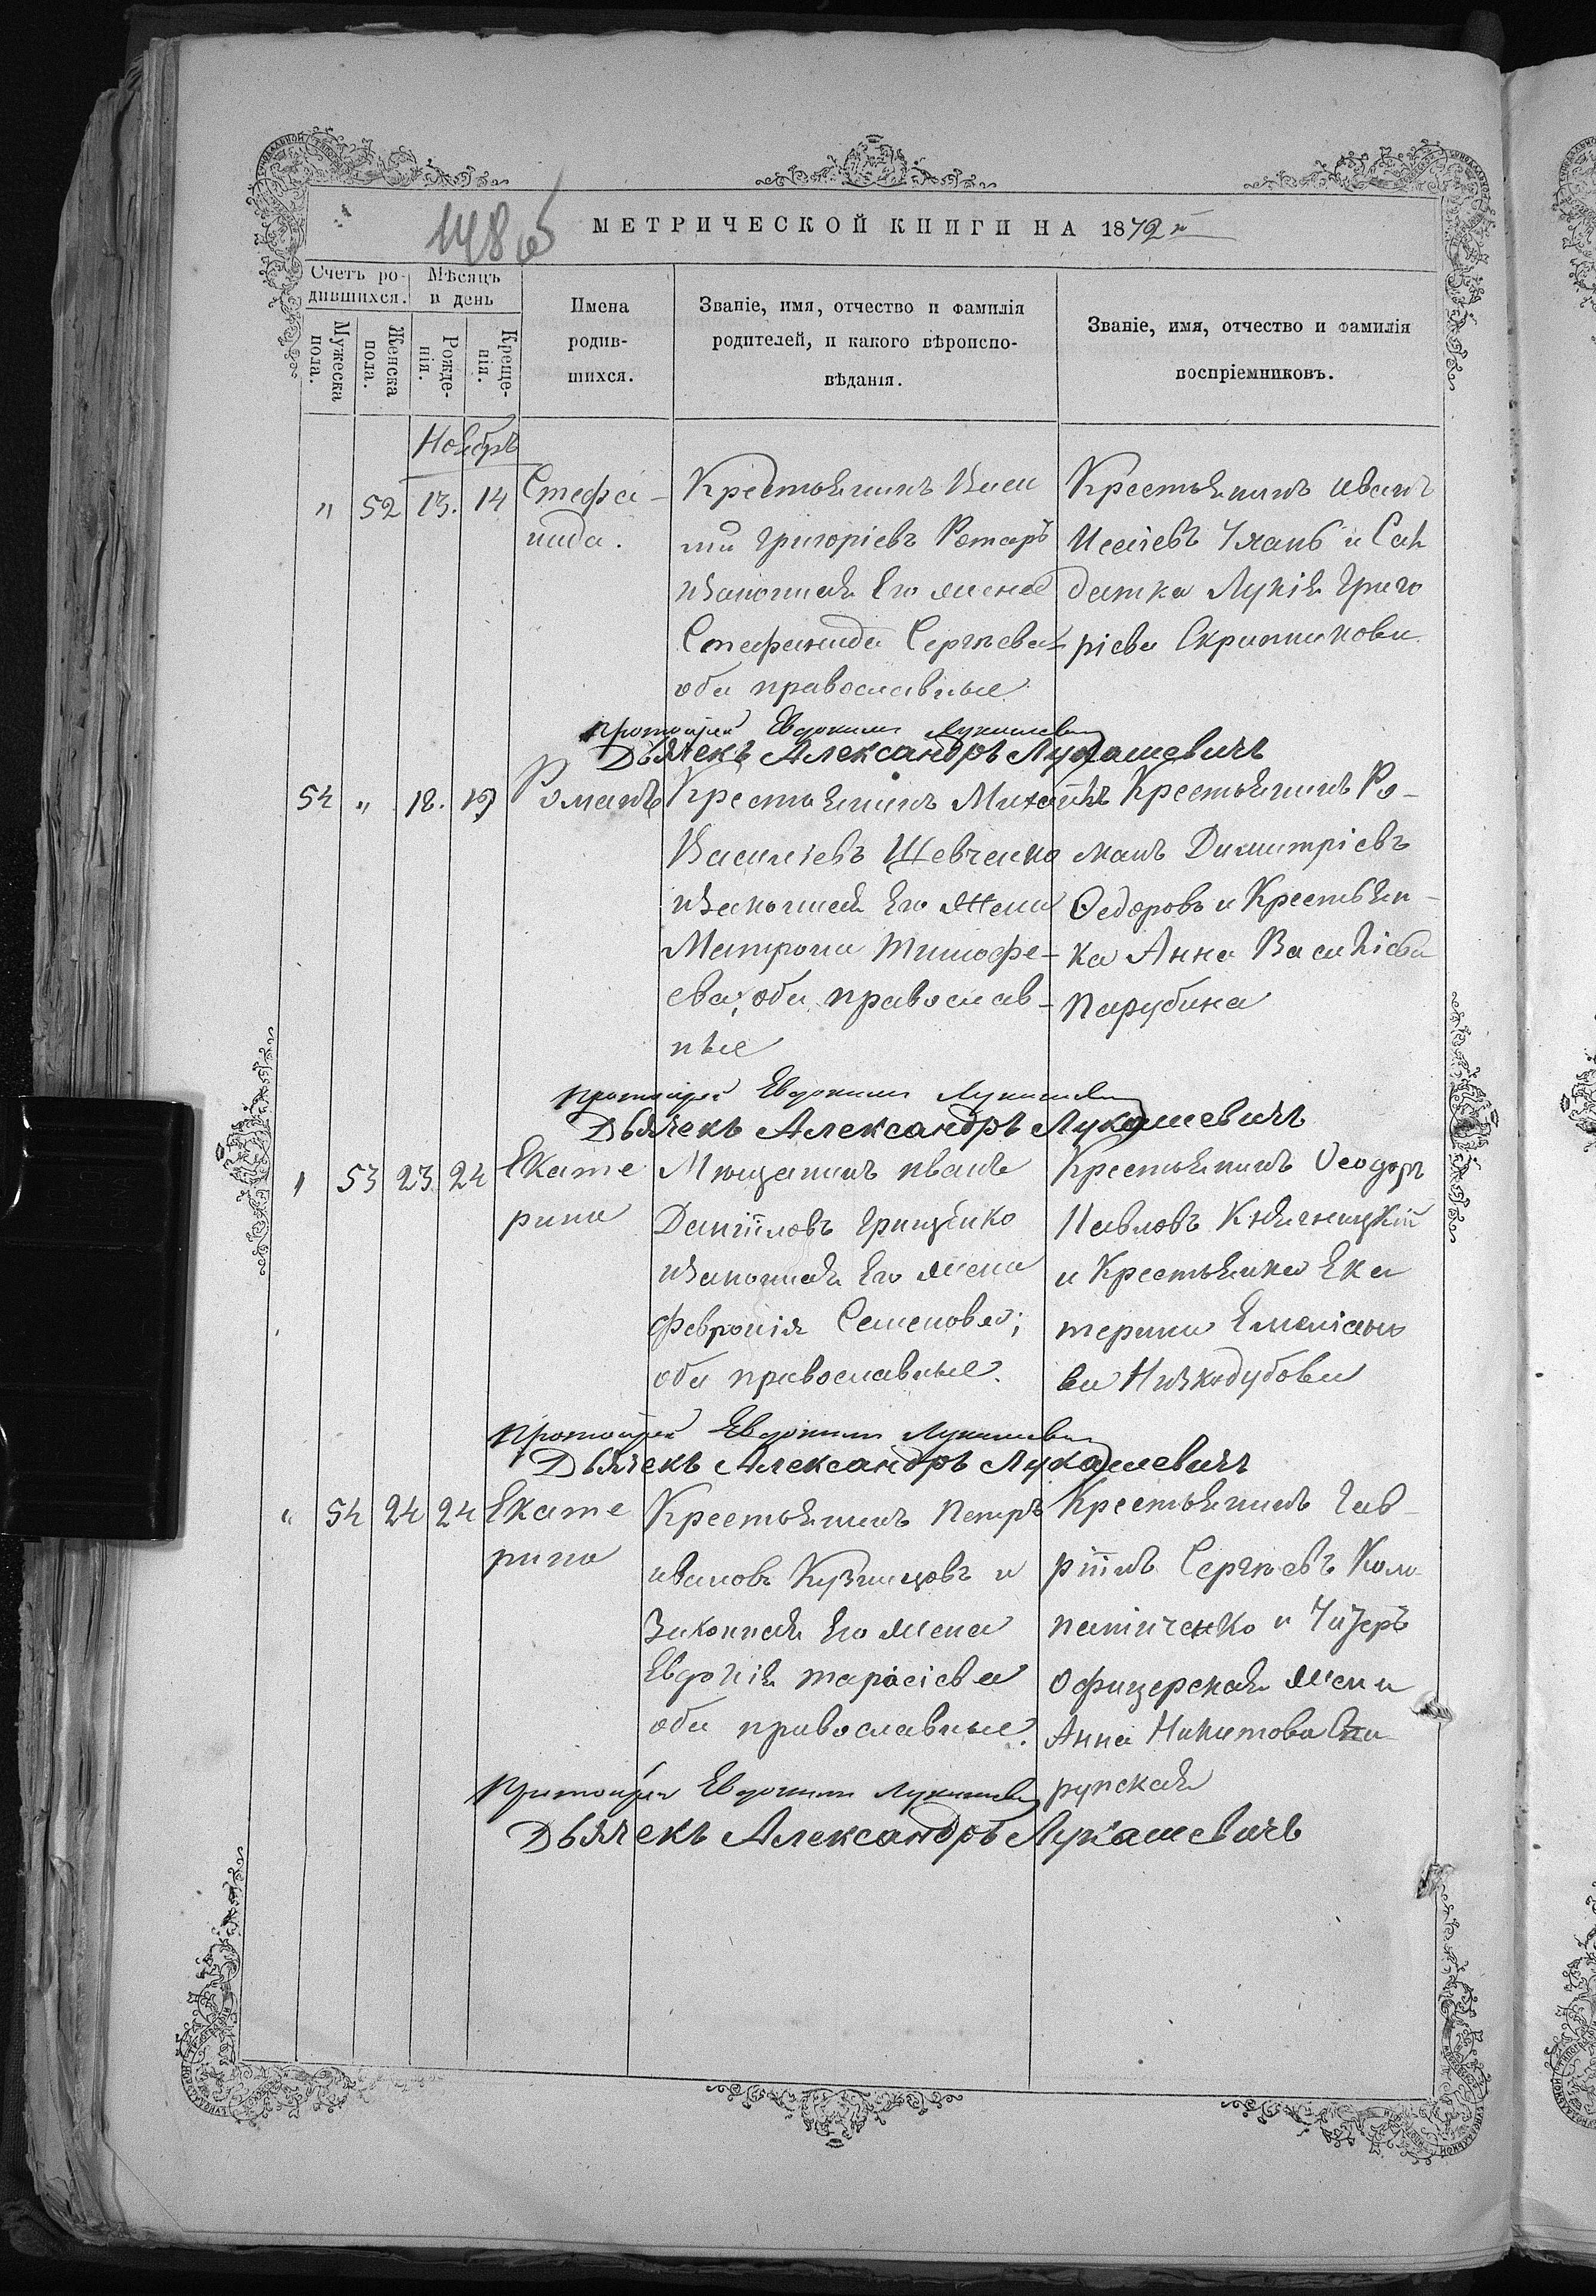 148 об
МЕТРИЧЕСКОЙ КНИГИ НА 1872й
Счетъ ро-
дившихся.
Мѣсяцъ
и день
Мужеска пола.
Женска пола.
Рожде-
нія.
Креще-
нія.
Имена
родив-
шихся.
Званіе, имя, отчество и фамилія
родителей, и какого вѣроиспо-
вѣданія.
Званіе, имя, отчество и фамилія
воспріемниковъ.
Ноябрь
" 52 13. 14
Стефа-
нида.
Крестьянинъ Васи
лій Григоріевъ Ротаръ
изаконная Его жена
Стефанида Сергѣева
оба православные
Крестьянинъ Иванъ
Исаіевъ и Сал
датка Лукія Григо
ріева Скрипникова
Протоіерей Евдокимъ Лукашевичъ
Дьячекъ Александръ Лукашевичъ
54 " 18. 19
Романъ
Крестьянинъ Михаилъ
Василіевъ Шевченко
изаконная Его Жена
Матрона Тимофе-
ева, оба православ-
ные
Крестьянинъ Ро-
манъ Димитріевъ
Ѳедоровъ и Крестьян-
ка Анна Василіева
Парубина
Протоіерей Евдокимъ Лукашевичъ
Дьячекъ Александръ Лукашевичъ
" 53 23 24
Екате
рина
Мѣщанинъ Иванъ
Даніиловъ Грищенко
изаконная Его жена
Февронія Семенова;
оба православные.
Крестьянинъ Ѳеодоръ
Павловъ
и Крестьянка Ека
терина Емеліано
ва Низкодубова
Протоіерей Евдокимъ Лукашевичъ
Дьячекъ Александръ Лукашевичъ
" 54 24 24
Екате
рина
Крестьянинъ Петръ
Ивановъ Кузнецовъ и
Законная Его жена
Евдокія Тарасіева
оба православные.
Крестьянинъ Гав-
ріилъ Сергѣевъ Коло
патиченко и Унтеръ
Офицерская жена
Анна Никитова
Протоіерей Евдокимъ Лукашевичъ
Дьячекъ Александръ Лукашевичъ